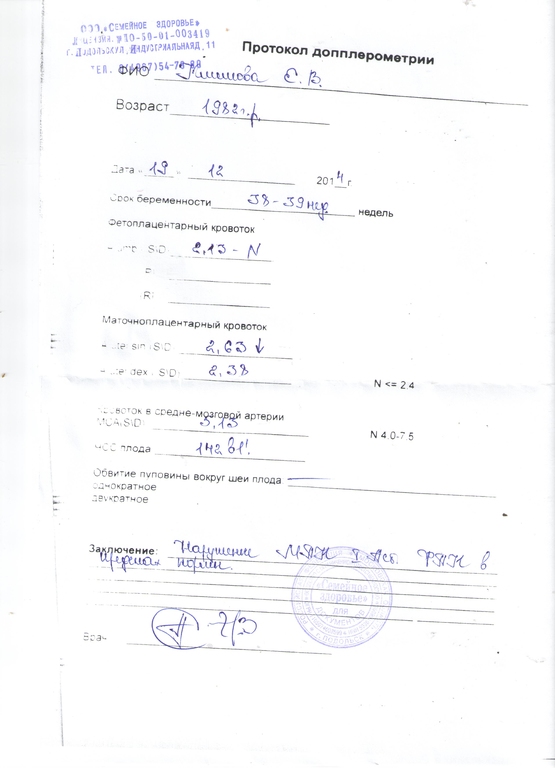 ООО "СЕМЕЙНОЕ ЗДОРОВЬЕ"
ЛИЦЕНЗИЯ №ЛО-50-01-003419
г. ПОДОЛЬСК УЛ. ИНДУСТРИАЛЬНАЯ Д. 11
ТЕЛ.
Протокол допплерометрии
ФИО Е. В.
Возраст 1982 г.р.
Дата « 19 » 12 2014 г
Срок беременности 38-39 нед недель
Фетоплацентарный кровоток
2,13 - N
Маточноплацентарный кровоток
2,63 ↓
2,38
N <= 2.4
кровоток в средне-мозговой артерии
MCA(SID) 3,13
N 4.0-7.5
ЧСС плода 142
Обвитие пуповины вокруг шеи плода —
однократное
двукратное
Заключение: Нарушение МПК I ст. ФПК в
пределах нормы.
«Семейное здоровье»
Врач